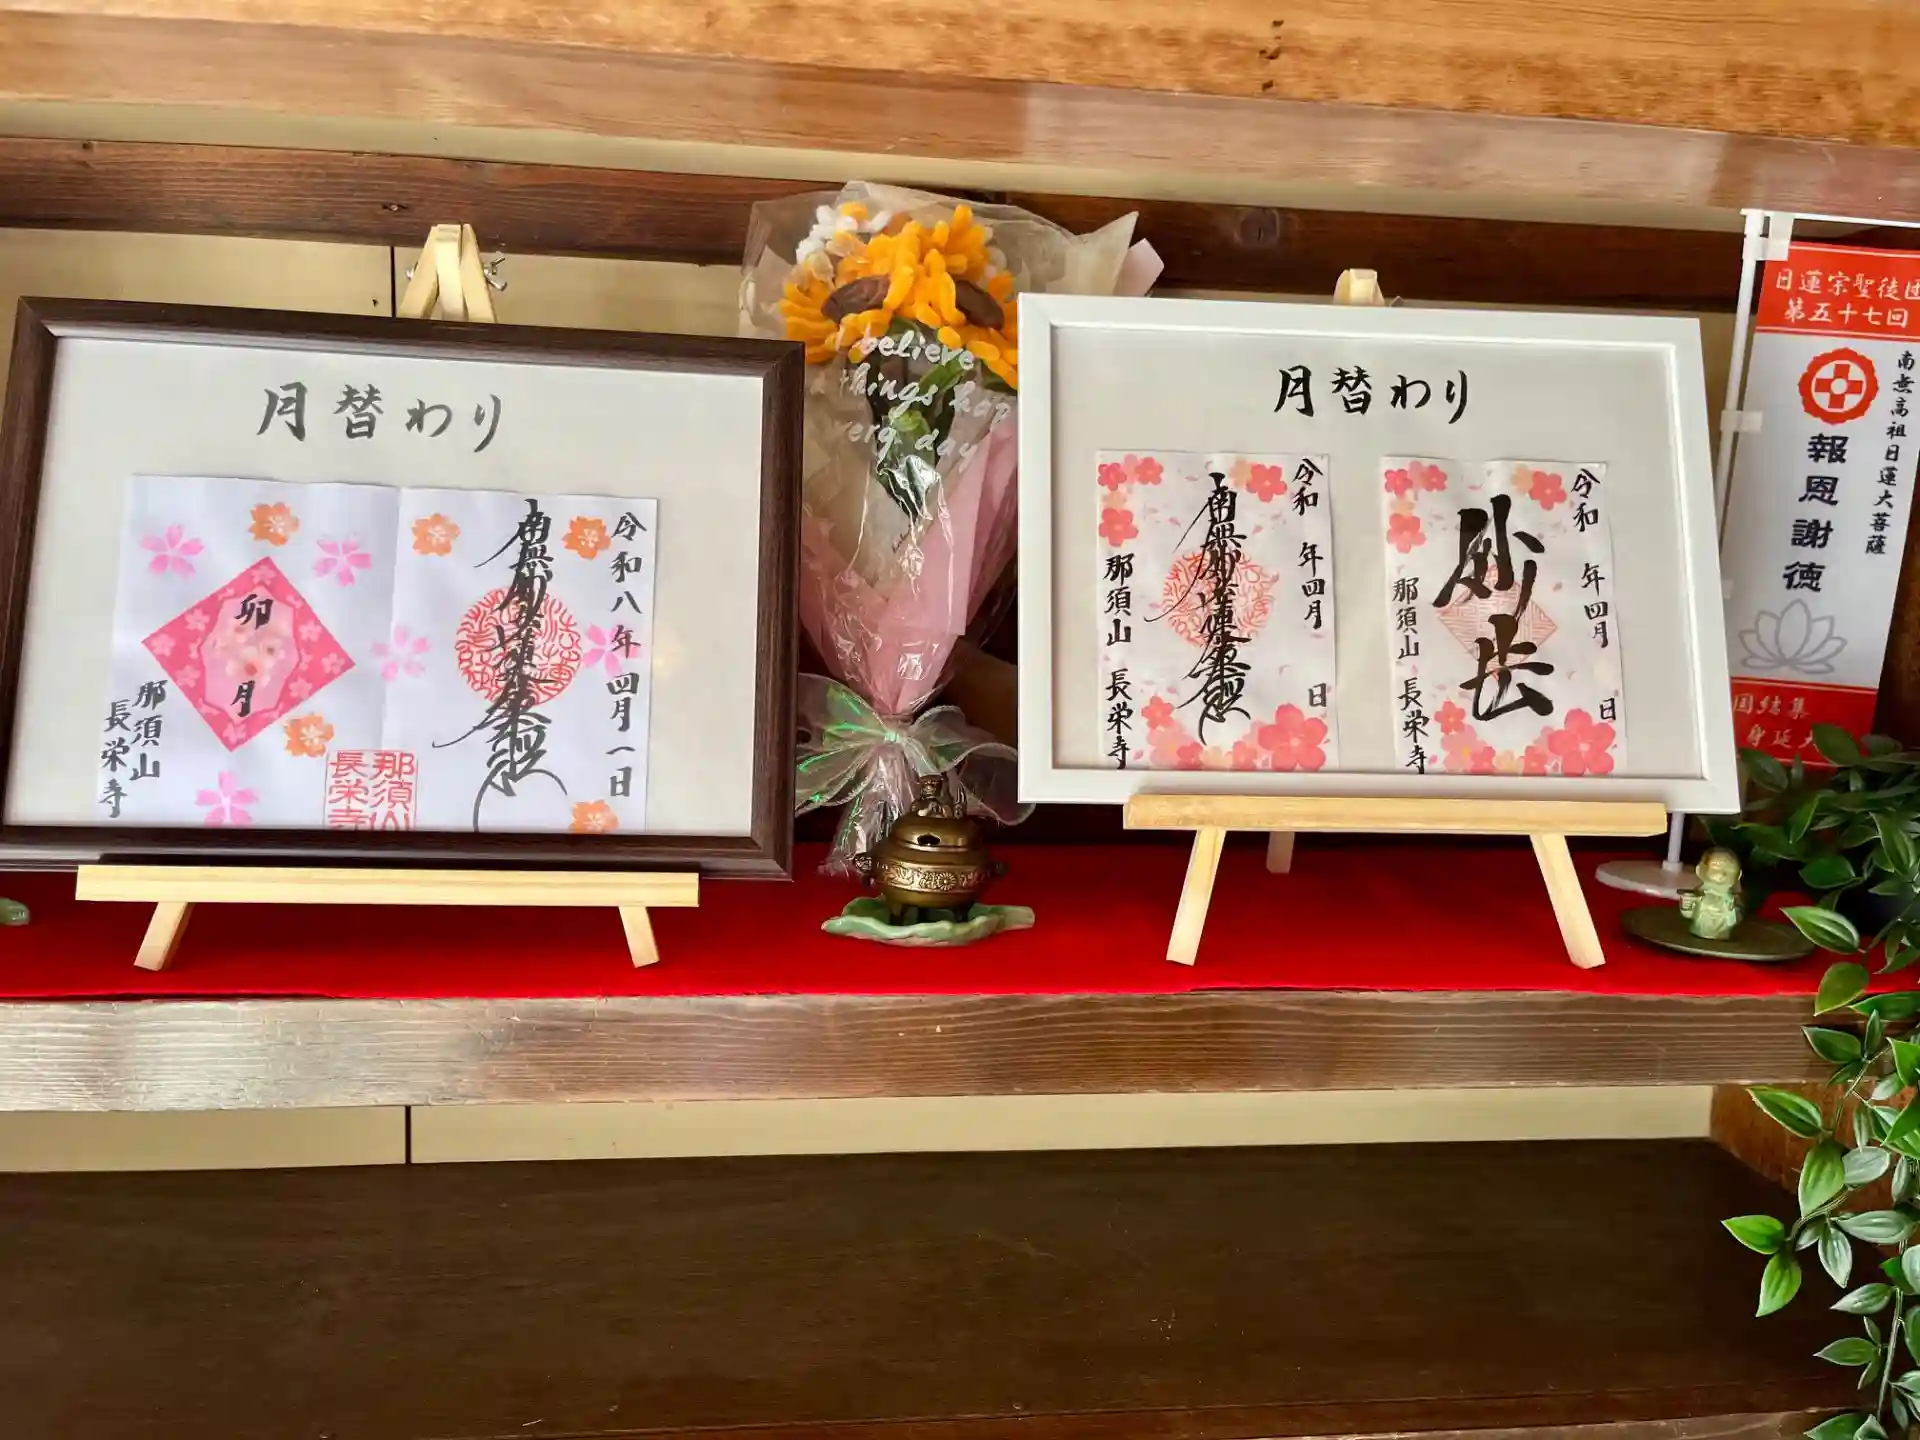 月替わり
令和八年四月一日
南無妙法蓮華経
卯月
那須山
長栄寺
那須山
長栄寺
I believe
things hap
very day
月替わり
令和 年四月 日
南無妙法蓮華経
那須山 長栄寺
令和 年四月 日
妙法
那須山 長栄寺
日蓮宗聖徒団
第五十七回
南無高祖日蓮大菩薩
報恩謝徳
団結集
身延